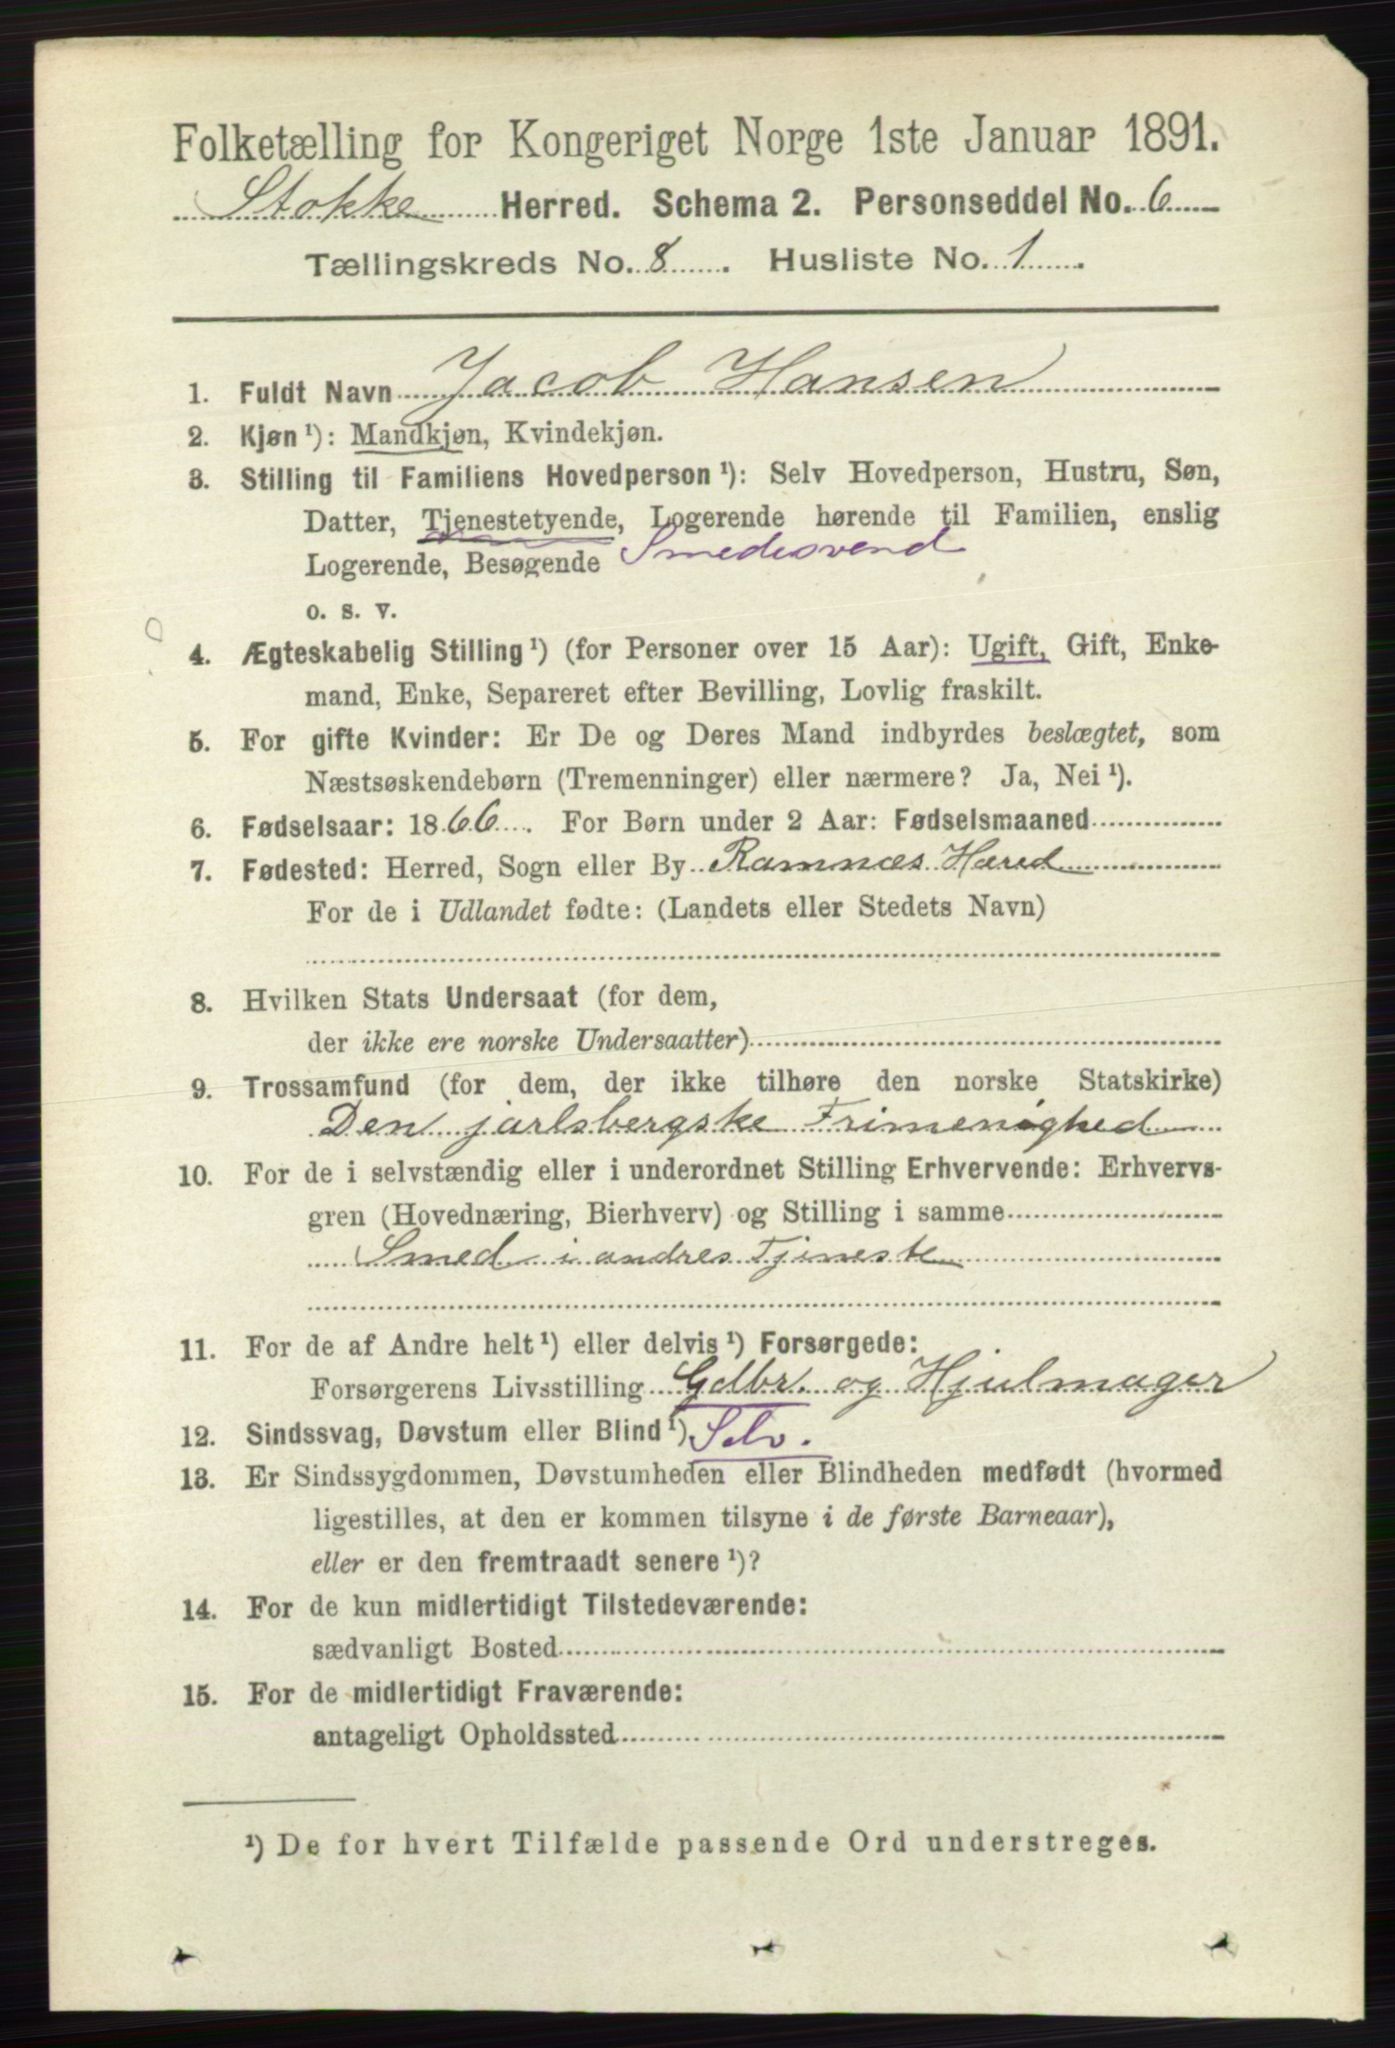 Folketælling for Kongeriget Norge 1ste Januar 1891.
Stokke Herred. Schema 2. Personseddel No. 6
Tællingskreds No. 8. Husliste No. 1.
1. Fuldt Navn Jacob Hansen
2. Kjøn ¹): Mandkjøn, Kvindekjøn.
3. Stilling til Familiens Hovedperson ¹): Selv Hovedperson, Hustru, Søn,
Datter, Tjenestetyende, Logerende hørende til Familien, enslig
Logerende, Besøgende Smedesvend
o. s. v.
4. Ægteskabelig Stilling ¹) (for Personer over 15 Aar): Ugift, Gift, Enke-
mand, Enke, Separeret efter Bevilling, Lovlig fraskilt.
5. For gifte Kvinder: Er De og Deres Mand indbyrdes beslægtet, som
Næstsøskendebørn (Tremenninger) eller nærmere? Ja, Nei ¹).
6. Fødselsaar: 1866. For Børn under 2 Aar: Fødselsmaaned
7. Fødested: Herred, Sogn eller By Ramnæs Hered
For de i Udlandet fødte: (Landets eller Stedets Navn)
8. Hvilken Stats Undersaat (for dem,
der ikke ere norske Undersaatter)
9. Trossamfund (for dem, der ikke tilhøre den norske Statskirke)
Den jarlsbergske Frimenighed
10. For de i selvstændig eller i underordnet Stilling Erhvervende: Erhvervs-
gren (Hovednæring, Bierhverv) og Stilling i samme
Smed i andres Tjeneste
11. For de af Andre helt ¹) eller delvis ¹) Forsørgede:
Forsørgerens Livsstilling Gdbr. og Hjulmager
12. Sindssvag, Døvstum eller Blind ¹) Selv.
13. Er Sindssygdommen, Døvstumheden eller Blindheden medfødt (hvormed
ligestilles, at den er kommen tilsyne i de første Barneaar),
eller er den fremtraadt senere ¹)?
14. For de kun midlertidigt Tilstedeværende:
sædvanligt Bosted
15. For de midlertidigt Fraværende:
antageligt Opholdssted
¹) De for hvert Tilfælde passende Ord understreges.